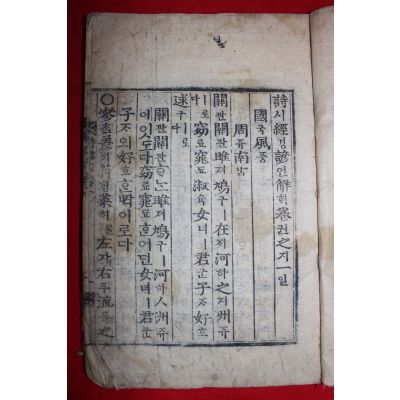 詩시經경諺언解ᄒᆡ卷권之지一일
國국風풍
周쥬南남
關관關관雎져鳩구ㅣ在ᄌᆡ河하之지洲쥬
ㅣ로다窈요窕됴淑슉女녀ㅣ君군子ᄌᆞ好호
逑구ㅣ로다
關관關관ᄒᆞᆫ雎져鳩구ㅣ河하ㅅ洲쥬
에잇도다窈요窕됴ᄒᆞᆫ어딘女녀ㅣ君군
子ᄌᆞ의好호ᄒᆞᆫᄧᅡᆨ이로다
○參差荇菜左자右우流류之